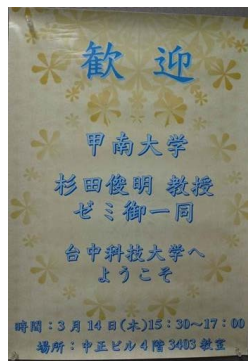 歓迎
甲南大学
杉田俊明 教授
ゼミ御一同
台中科技大学へ
ようこそ
時間：3月14日(木)15：30~17：00
場所：中正ビル4階3403教室